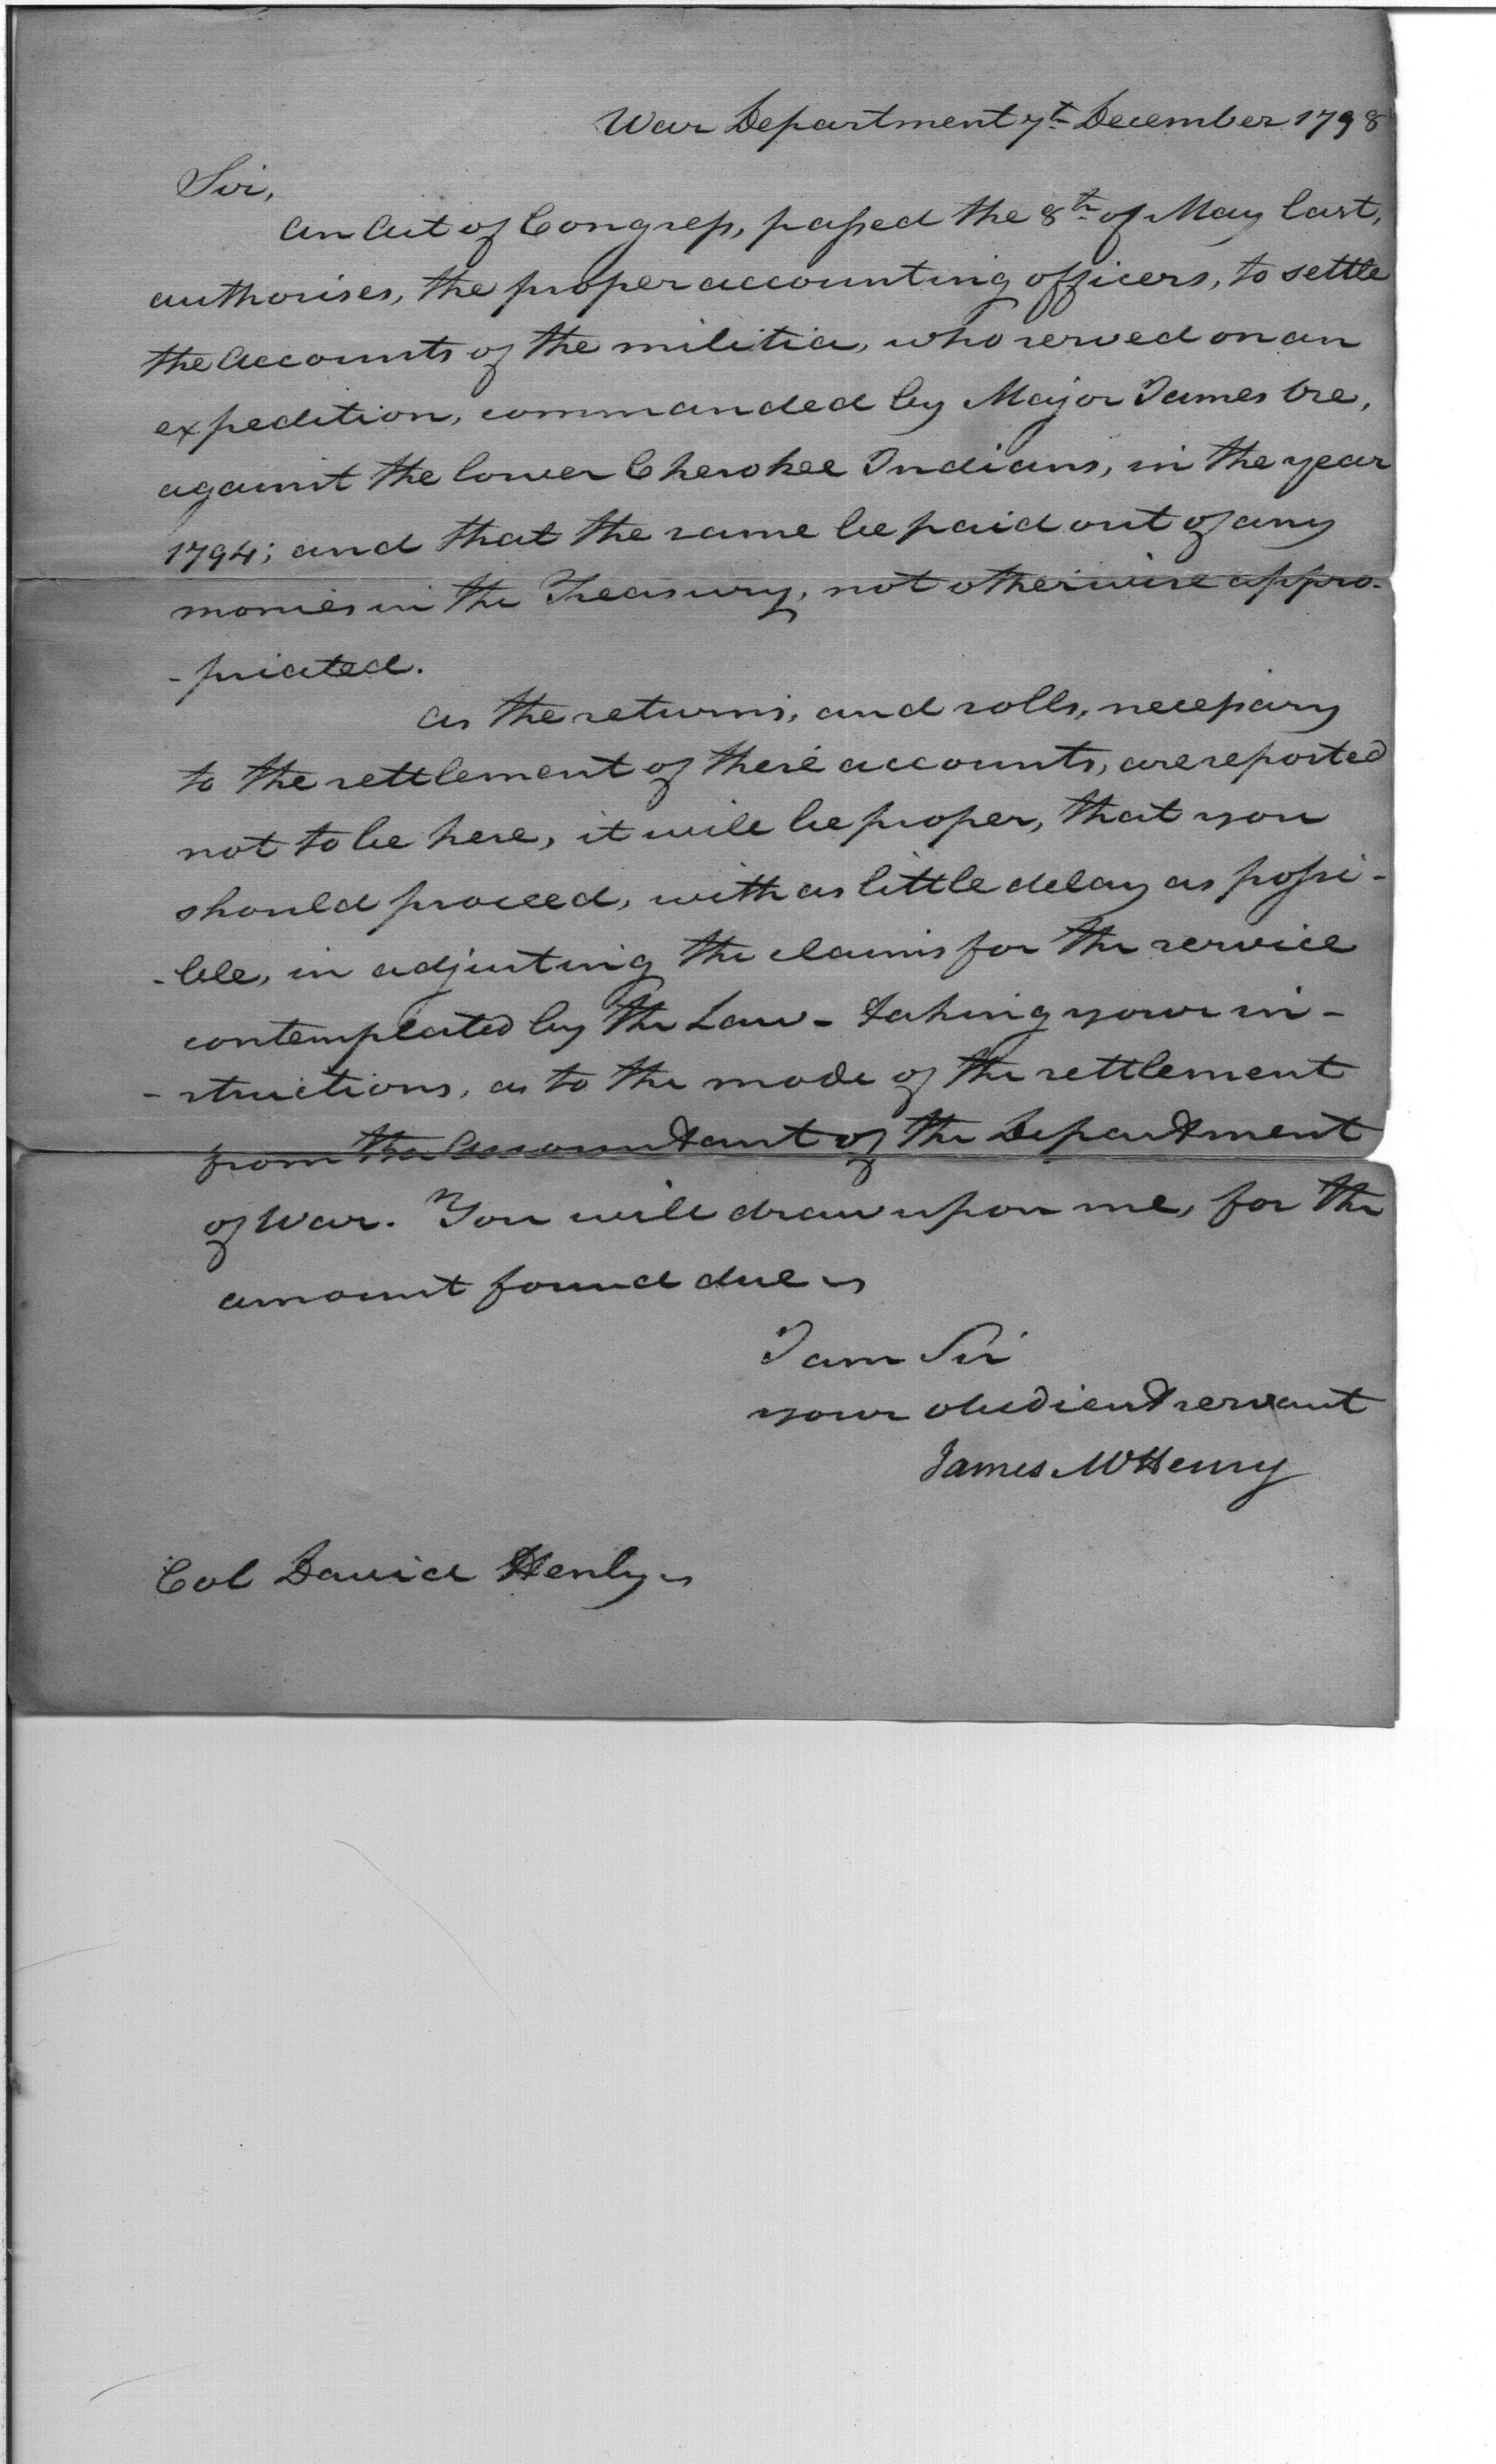 War Department 7th December 1798
Sir,
An Act of Congress, passed the 8th of May last,
authorises, the proper accounting officers, to settle
the Accounts of the militia, who served on an
expedition, commanded by Major James Ore,
against the lower Cherokee Indians, in the year
1794; and that the same be paid out of any
monies in the Treasury, not otherwise appro-
-priated.
As the returns, and rolls, necessary
to the settlement of these accounts, are reported
not to be here, it will be proper, that you
should proceed, with as little delay as possi-
-ble, in adjusting the claims for the service
contemplated by the Law - taking your in-
-structions, as to the mode of the settlement
from the Accountant of the Department
of War. You will draw upon me, for the
amount found due
I am Sir
your obedient servant
James McHenry
Col David Henly